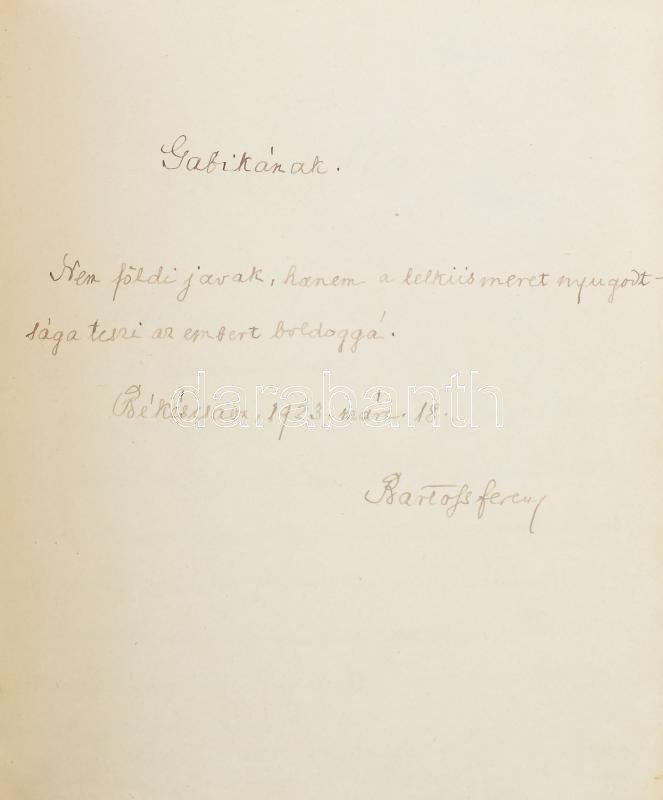 Gabikának.
Nem földi javak, hanem a lelkiismeret nyugodt-
sága teszi az embert boldoggá.
darabanth
1923. márc. 18.
Bartoss Ferenc